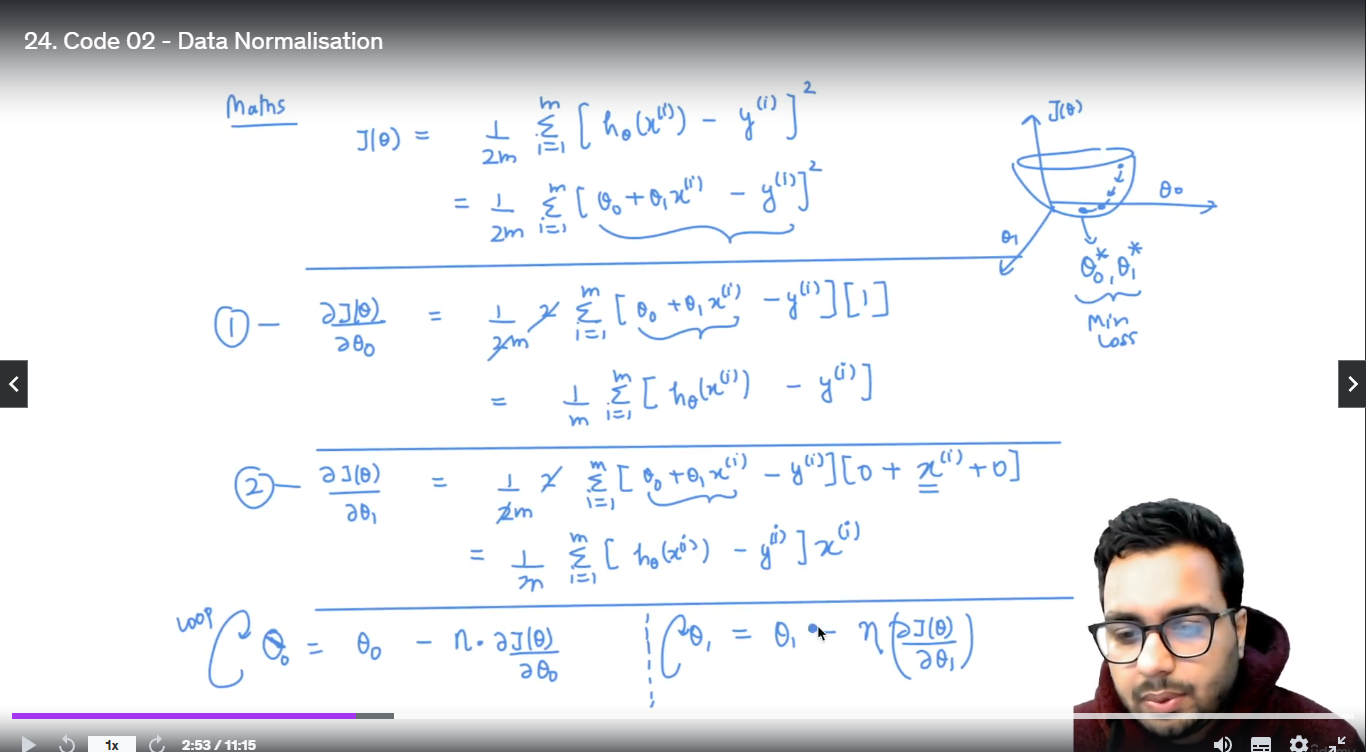 24. Code 02 - Data Normalisation
Maths
J(θ) = 1/2m Σ_{i=1}^{m} [ h_θ(x^{(i)}) - y^{(i)} ]^2
= 1/2m Σ_{i=1}^{m} [ θ_0 + θ_1 x^{(i)} - y^{(i)} ]^2
J(θ)
θ_0
θ_1
θ_0^*, θ_1^*
Min
Loss
① - ∂J(θ)/∂θ_0 = 1/2m 2 Σ_{i=1}^{m} [ θ_0 + θ_1 x^{(i)} - y^{(i)} ] [ 1 ]
= 1/m Σ_{i=1}^{m} [ h_θ(x^{(i)}) - y^{(i)} ]
② - ∂J(θ)/∂θ_1 = 1/2m 2 Σ_{i=1}^{m} [ θ_0 + θ_1 x^{(i)} - y^{(i)} ] [ 0 + x^{(i)} + 0 ]
= 1/m Σ_{i=1}^{m} [ h_θ(x^{(i)}) - y^{(i)} ] x^{(i)}
LOOP θ_0 = θ_0 - η · ∂J(θ)/∂θ_0
θ_1 = θ_1 - η ( ∂J(θ)/∂θ_1 )
1x
2:53 / 11:15